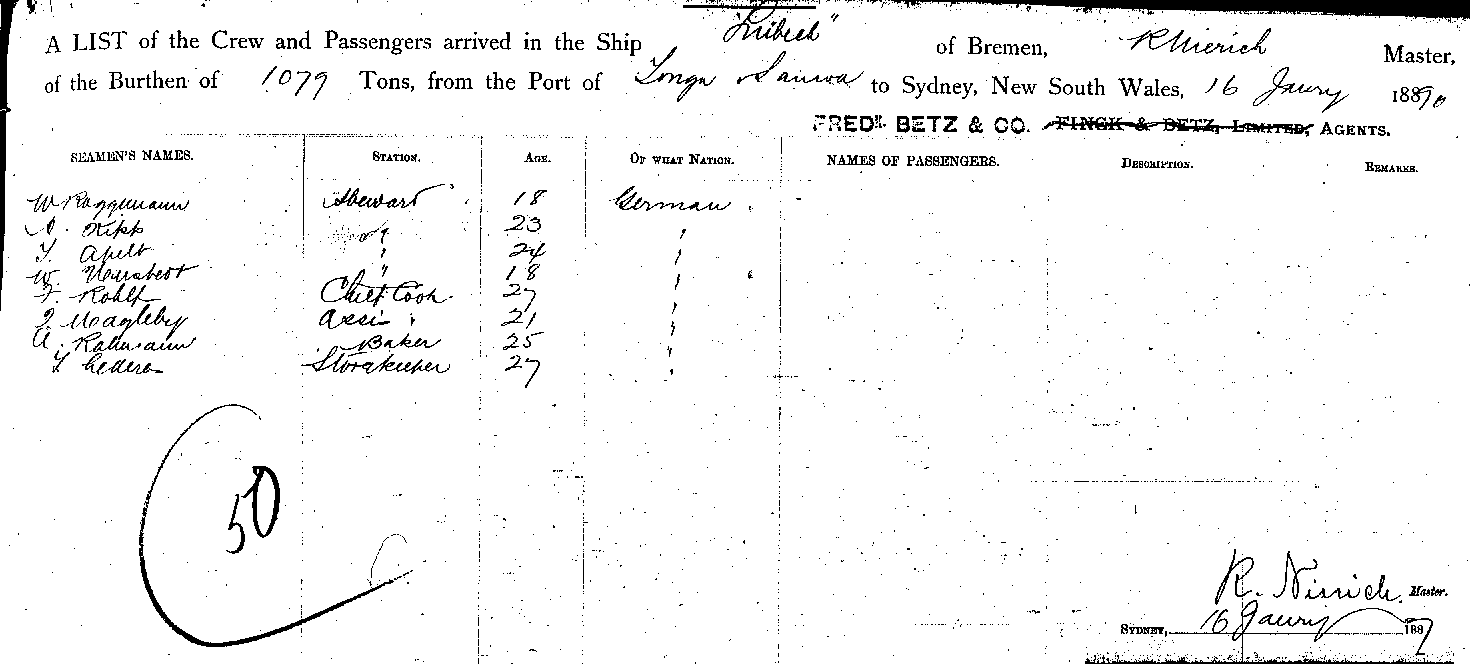 A LIST of the Crew and Passengers arrived in the Ship "Lübeck" of Bremen, Master,
of the Burthen of 1079 Tons, from the Port of Tonga & Samoa to Sydney, New South Wales, 16 Jaury 1890
FREDK. BETZ & CO. FINCK & BETZ, LIMITED, AGENTS.
SEAMEN'S NAMES. STATION. AGE. OF WHAT NATION. NAMES OF PASSENGERS. DESCRIPTION. REMARKS.
W Roggemann Stewart 18 German
Kipp " 23 "
Apelt " 24 "
W. " 18 "
F. Rohlf Chief Cook 27 "
Magleby Assi " 21 "
A. Baker 25 "
Storekeeper 27 "
50
R. Master.
SYDNEY, 16 Jaury 188